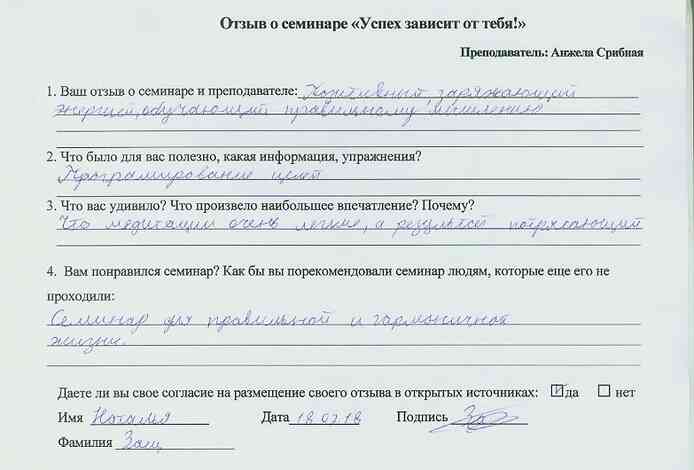 Отзыв о семинаре «Успех зависит от тебя!»
Преподаватель: Анжела Срибная
1. Ваш отзыв о семинаре и преподавателе: Позитивный, заряжающий
энергией, обучающий правильному мышлению
2. Что было для вас полезно, какая информация, упражнения?
Програмирование целей
3. Что вас удивило? Что произвело наибольшее впечатление? Почему?
Что медитации очень легкие, а результат потрясающий
4. Вам понравился семинар? Как бы вы порекомендовали семинар людям, которые еще его не
проходили:
Семинар для правильной и гармоничной
жизни.
Даете ли вы свое согласие на размещение своего отзыва в открытых источниках: да нет
Имя Наталия Дата 18.02.18 Подпись
Фамилия